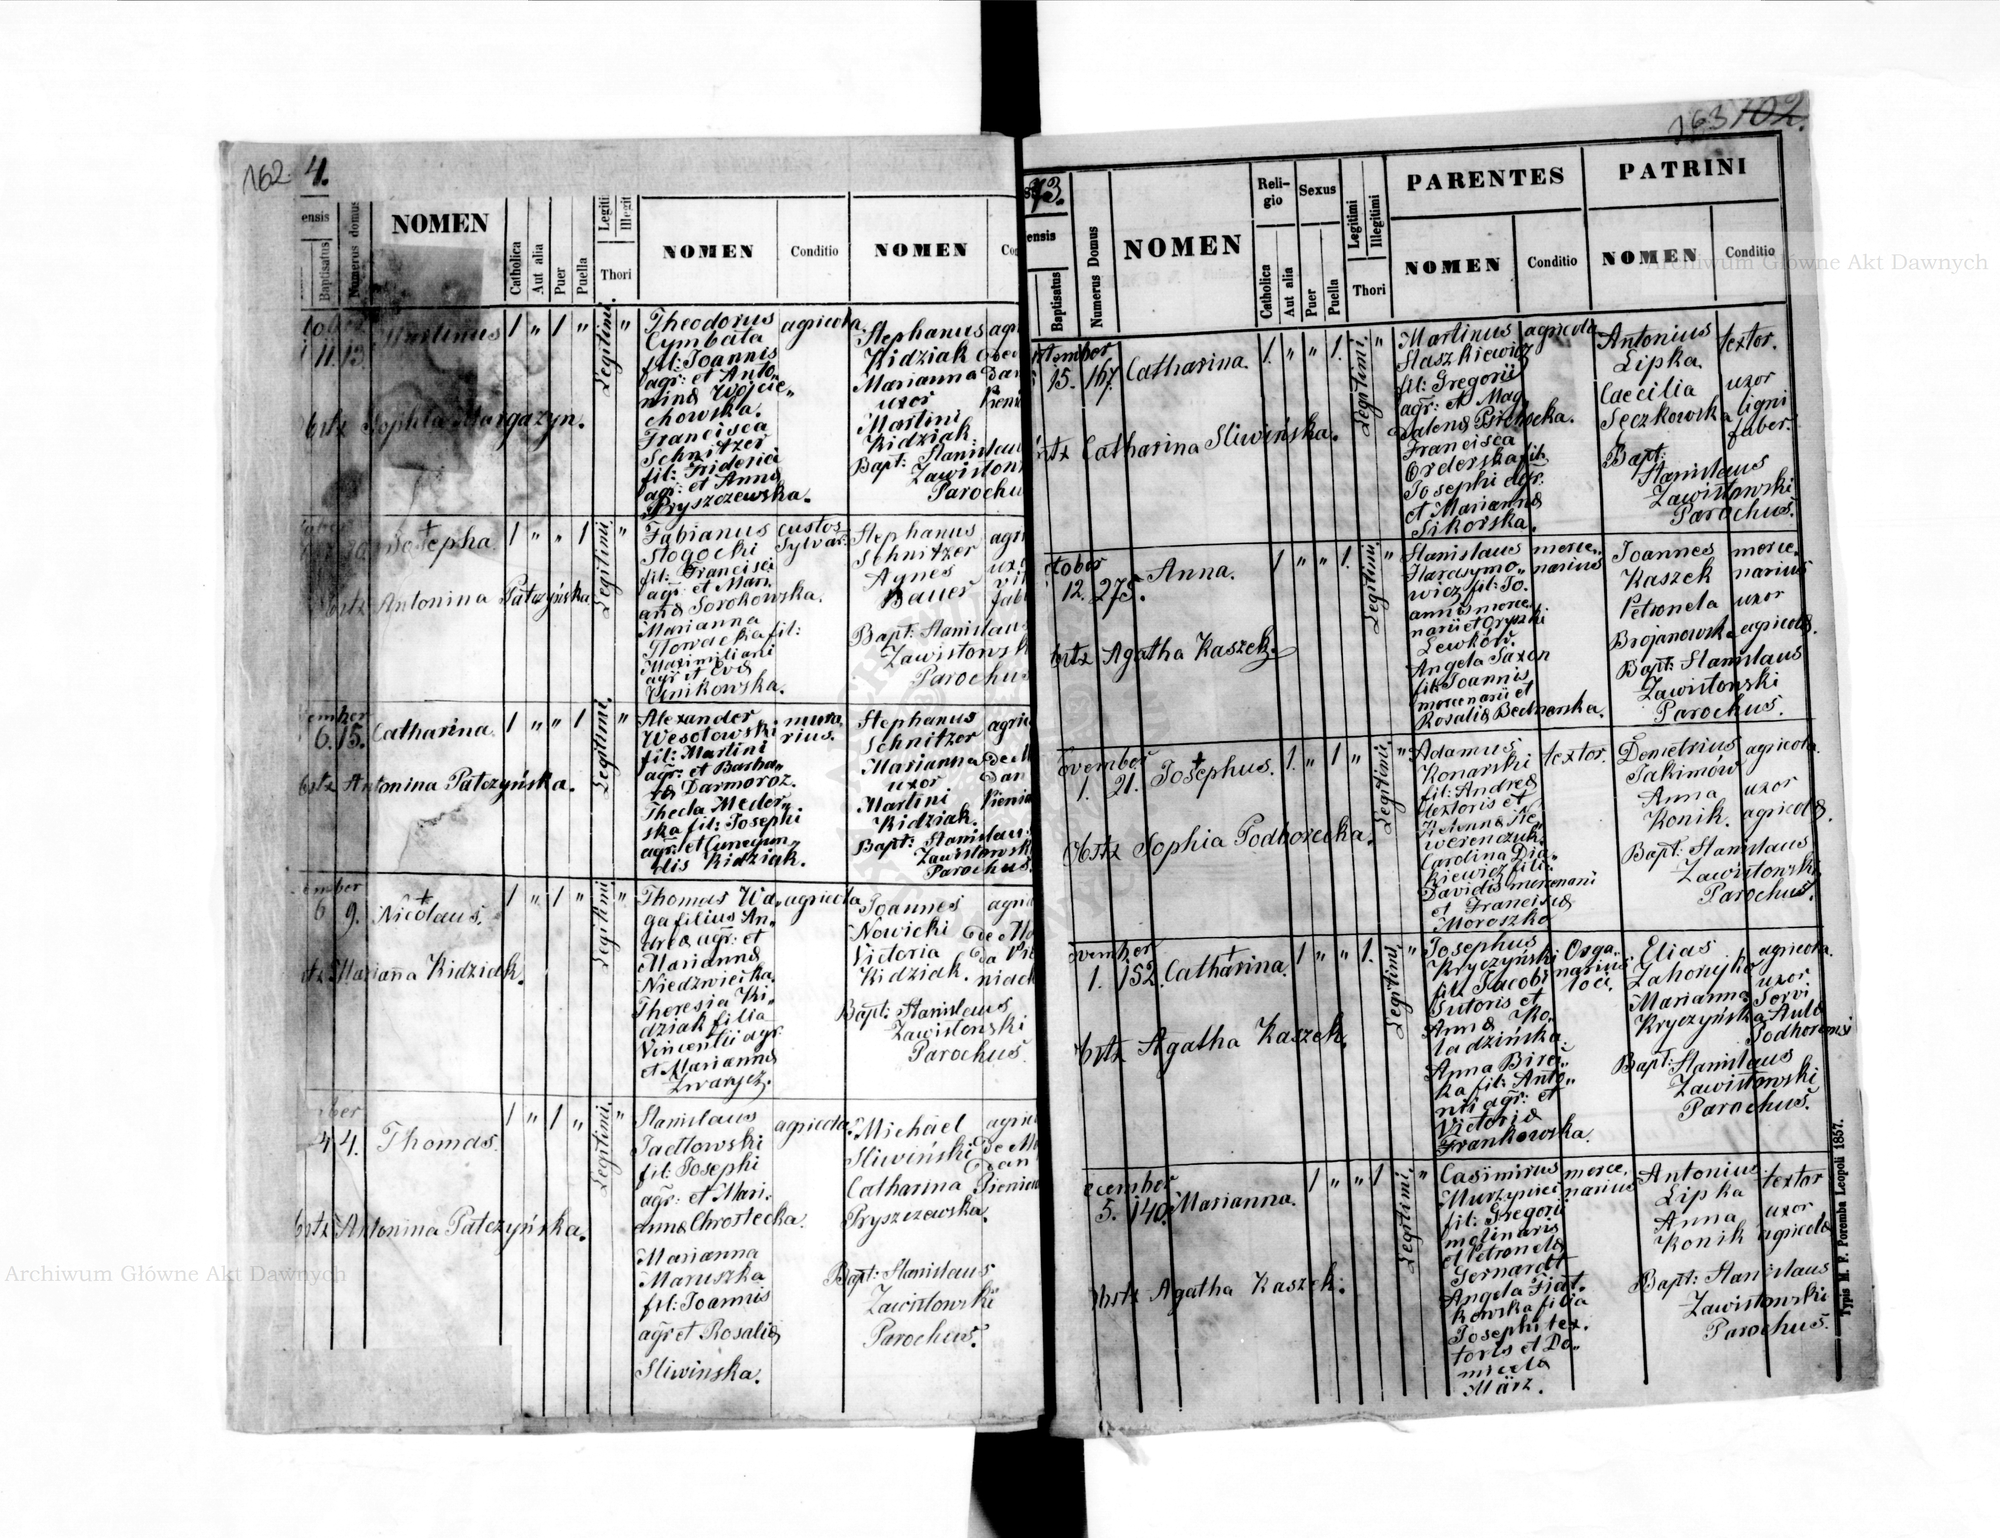 162. 4.
ensis
Baptisatus
Numerus domus
NOMEN
Catholica
Aut alia
Puer
Puella
Legiti
Illegit
Thori
NOMEN
Conditio
NOMEN
11. 13. Martinus 1 " 1 " Legitimi. "
Theodorus agricola
Cymbała
fil: Joannis
agr: et Anto„
ninæ Wojcie„
chowska.
Francisca
Schnitzer
fil: Friderici
agr: et Annæ
Pryszczewska.
Stephanus
Kidziak
Marianna
uxor
Martini
Kidziak.
Bapt: Stanislaus
Zawistowski
Parochus
Obstz Sophia Margazyn.
Josepha. 1 " " 1 Legitimi. "
Fabianus custos
Stogocki Sylvar.
fil: Francisci
agr: et Mari
annæ Sorokowska.
Marianna
Nowacka fil:
Maximiliani
agr: et Evæ
Winikowska.
Stephanus
Schnitzer
Agnes
Bauer
Bapt: Stanislaus
Zawistowsk
Parochus
Antonina Patczyńska
ember
6. 15. Catharina. 1 " " 1 Legitimi. "
Alexander mura„
Wesołowski rius.
fil: Martini
agr: et Barba„
ræ Darmoroz.
Thecla Medor„
ska fil: Josephi
agr: et Cunegun„
dis Kidziak.
Stephanus
Schnitzer
Marianna
uxor
Martini
Kidziak.
Bapt: Stanislaus
Zawistowsk
Parochus.
bstz Antonina Patczyńska.
ember
6 9. Nicolaus. 1 " 1 " Legitimi "
Thomas Wa„ agricola
ga filius An„
dreæ agr: et
Mariannæ
Niedzwiecka.
Theresia Ki„
dziak filia
Vincentii agr.
et Mariannæ
Zwarycz.
Joannes
Nowicki
Victoria
Kidziak.
Bapt: Stanislaus
Zawistowski
Parochus.
tz Marianna Kidziak.
ber
4 4. Thomas. 1 " 1 " Legitimi. "
Stanislaus agricola.
Jadłowski
fil: Josephi
agr: et Mari„
annæ Chrostecka.
Marianna
Maruszka
fil: Joannis
agr et Rosaliæ
Sliwinska.
Michael
Sliwiński
Catharina
Pryszczewska.
Bapt: Stanislaus
Zawistowski
Parochus.
bstz Antonina Patczyńska.
163 102.
73.
ensis
Baptisatus
Numerus Domus
NOMEN
Reli-
gio
Sexus
Catholica
Aut alia
Puer
Puella
Legitimi
Illegitimi
Thori
PARENTES
NOMEN
Conditio
PATRINI
NOMEN
Conditio
tember
15. 167. Catharina. 1. " " 1. Legitimi. "
Martinus agricola
Staszkiewicz
fil: Gregorii
agr: et Mag
dalenæ Pirchocka.
Francisca
Orderska fil:
Josephi agr.
et Mariannæ
Sikorska.
Antonius textor.
Lipka.
Caecilia uxor
Seczkowska ligni
faber.
Bapt:
Stanislaus
Zawistowski
Parochus.
bstz Catharina Sliwińska.
ctober
12. 275. Anna. 1 " " 1. Legitimi. "
Stanislaus merce„
Harasymo„ narius
wicz fil: Jo„
annis merce
narii et Oryszki
Lewków.
Angela Saxon
fil: Joannis
mercenarii et
Rosaliæ Bednarska.
Joannes merce„
Kaszek narius
Petronela uxor
Brojanowska agricolæ.
Bapt: Stanislaus
Zawistowski
Parochus.
bstz Agatha Kaszek.
ovember
1. 21. Josephus. 1. " 1 " Legitimi. "
Adamus textor.
Konarski
fil: Andreæ
textoris et
werenczuk.
Carolina Dia„
kiewicz filia
Davidis mercenarii
et Franciscæ
Moroszko
Demetrius agricola.
Jakimów
Anna uxor
Konik. agricolæ.
Bapt: Stanislaus
Zawistowski
Parochus.
Obstz Sophia Podhorecka.
ovember
1. 152. Catharina. 1 " " 1. Legitimi. "
Josephus Orga„
Kryczyński narius
fil: Jacobi loci.
Sutoris et
Annæ Ko„
ladzińska.
Anna Birec„
ka fil: Anto„
nii agr: et
Victoriæ
Frankowska.
Elias agricola.
Zahorujko
Marianna uxor.
Kryczyńska
Bapt: Stanislaus
Zawistowski
Parochus.
bstz Agatha Kaszek.
ecember
5. 140. Marianna. 1 " " 1 Legitimi. "
Casimirus merce„
Murzyniec narius
fil: Gregorii
molinaris
et Petronelæ
Gernardt
Angela Fiał„
kowska filia
Josephi tex„
toris et Do„
micela
März.
Antonius textor
Lipka
Anna uxor
Konik agricolæ
Bapt: Stanislaus
Zawistowski
Parochus.
bstz Agatha Kaszek.
Typis M. F. Poremba Leopoli 1857.
Archiwum Główne Akt Dawnych
Archiwum Główne Akt Dawnych